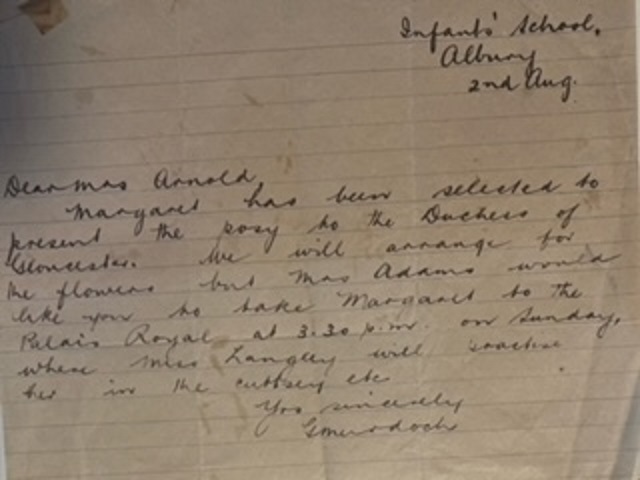 Infants' School,
Albury
2nd Aug.
Dear Mrs Arnold,
Margaret has been selected to
present the posy to the Duchess of
Gloucester. We will arrange for
the flowers but Mrs Adams would
like you to take Margaret to the
Palais Royal at 3.30 p.m. on Sunday,
where Miss Langley will practise
her in the curtsey etc
Yrs sincerely
GMurdoch